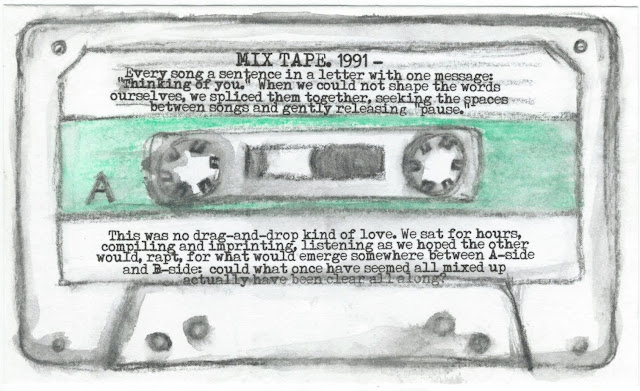 MIX TAPE. 1991 -
Every song a sentence in a letter with one message:
"Thinking of you." When we could not shape the words
ourselves, we spliced them together, seeking the spaces
between songs and gently releasing "pause."
A
This was no drag-and-drop kind of love. We sat for hours,
compiling and imprinting, listening as we hoped the other
would, rapt, for what would emerge somewhere between A-side
and B-side: could what once have seemed all mixed up
actually have been clear all along?